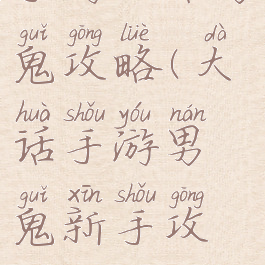 guǐ gōng lüè dà
鬼攻略(大
huà shǒu yóu nán
话手游男
guǐ xīn shǒu gōng
鬼新手攻